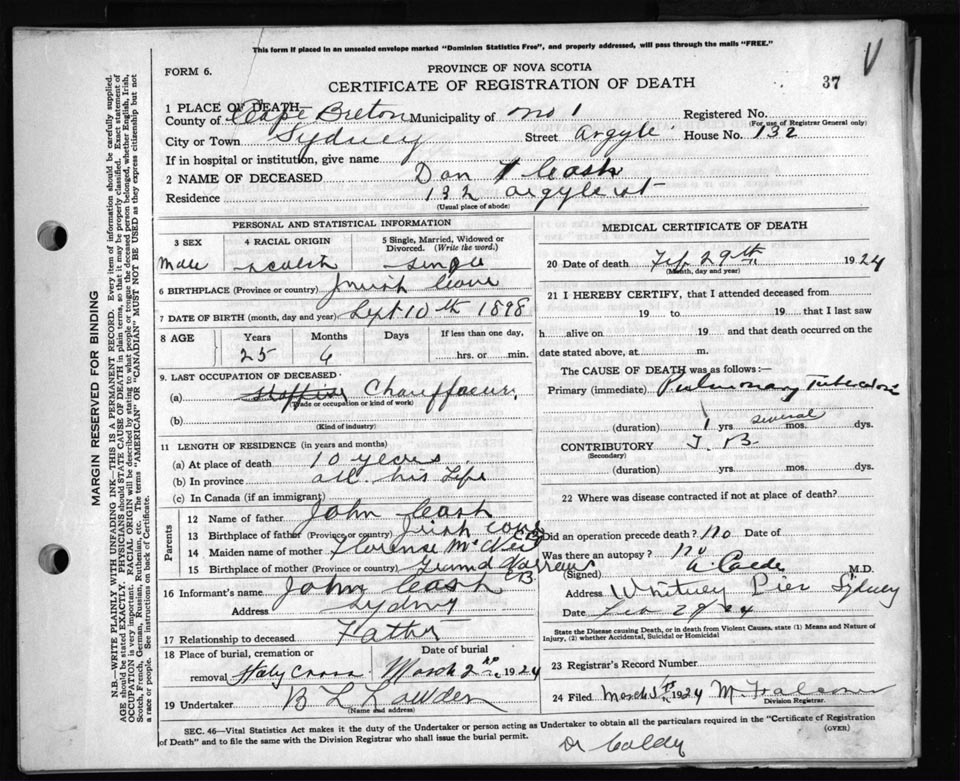 This form if placed in an unsealed envelope marked "Dominion Statistics Free", and properly addressed, will pass through the mails "FREE."
V
FORM 6.
PROVINCE OF NOVA SCOTIA
CERTIFICATE OF REGISTRATION OF DEATH
37
1 PLACE OF DEATH
County of Cape Breton Municipality of No 1 Registered No.
(For use of Registrar General only)
City or Town Sydney Street Argyle House No. 132
If in hospital or institution, give name
2 NAME OF DECEASED Dan Cash
Residence 132 Argyle st
(Usual place of abode)
PERSONAL AND STATISTICAL INFORMATION
3 SEX 4 RACIAL ORIGIN 5 Single, Married, Widowed or Divorced. (Write the word.)
Male single
6 BIRTHPLACE (Province or country) Irish Cove
7 DATE OF BIRTH (month, day and year) Sept 10th 1898
8 AGE Years Months Days If less than one day,
25 6 hrs. or min.
9. LAST OCCUPATION OF DECEASED
(a) Chauffaeur,
(Trade or occupation or kind of work)
(b)
(Kind of industry)
11 LENGTH OF RESIDENCE (in years and months)
(a) At place of death 10 years
(b) In province all his Life
(c) In Canada (if an immigrant)
Parents
12 Name of father John Cash
13 Birthplace of father (Province or country) Irish Cove CB
14 Maiden name of mother Florense McNeil
15 Birthplace of mother (Province or country) Grand Narrows CB
16 Informant's name John Cash
Address Sydney
17 Relationship to deceased Father
18 Place of burial, cremation or removal Date of burial
Holy Cross March 2nd 1924
19 Undertaker B L
(Name and address)
MEDICAL CERTIFICATE OF DEATH
20 Date of death Feb 29th 1924
(Month, day and year)
21 I HEREBY CERTIFY, that I attended deceased from
19 to 19 that I last saw
h alive on 19 and that death occurred on the
date stated above, at m.
The CAUSE OF DEATH was as follows:—
Primary (immediate) Pulmonary Tuberculosis
(duration) 1 yrs several mos. dys.
CONTRIBUTORY T. B.
(Secondary)
(duration) yrs. mos. dys.
22 Where was disease contracted if not at place of death?
Did an operation precede death? no Date of
Was there an autopsy? no
(Signed) M.D.
Address Whitney Pier Sydney
Date Feb 29/24
State the Disease causing Death, or in death from Violent Causes, state (1) Means and Nature of Injury, (2) whether Accidental, Suicidal or Homicidal
23 Registrar's Record Number
24 Filed March 1924
Division Registrar.
SEC. 46—Vital Statistics Act makes it the duty of the Undertaker or person acting as Undertaker to obtain all the particulars required in the "Certificate of Registration of Death" and to file the same with the Division Registrar who shall issue the burial permit.
(OVER)
Dr
MARGIN RESERVED FOR BINDING
N.B.—WRITE PLAINLY WITH UNFADING INK—THIS IS A PERMANENT RECORD. Every item of information should be carefully supplied.
AGE should be stated EXACTLY. PHYSICIANS should STATE CAUSE OF DEATH in plain terms, so that it may be properly classified. Exact statement of
OCCUPATION is very important. RACIAL ORIGIN will be described by stating to what people or tongue the deceased person belonged, whether English, Irish,
Scotch, French, German, Russian, Ruthenian, etc. The terms "AMERICAN" OR "CANADIAN" MUST NOT BE USED as they express citizenship but not
a race or people. See instructions on back of Certificate.